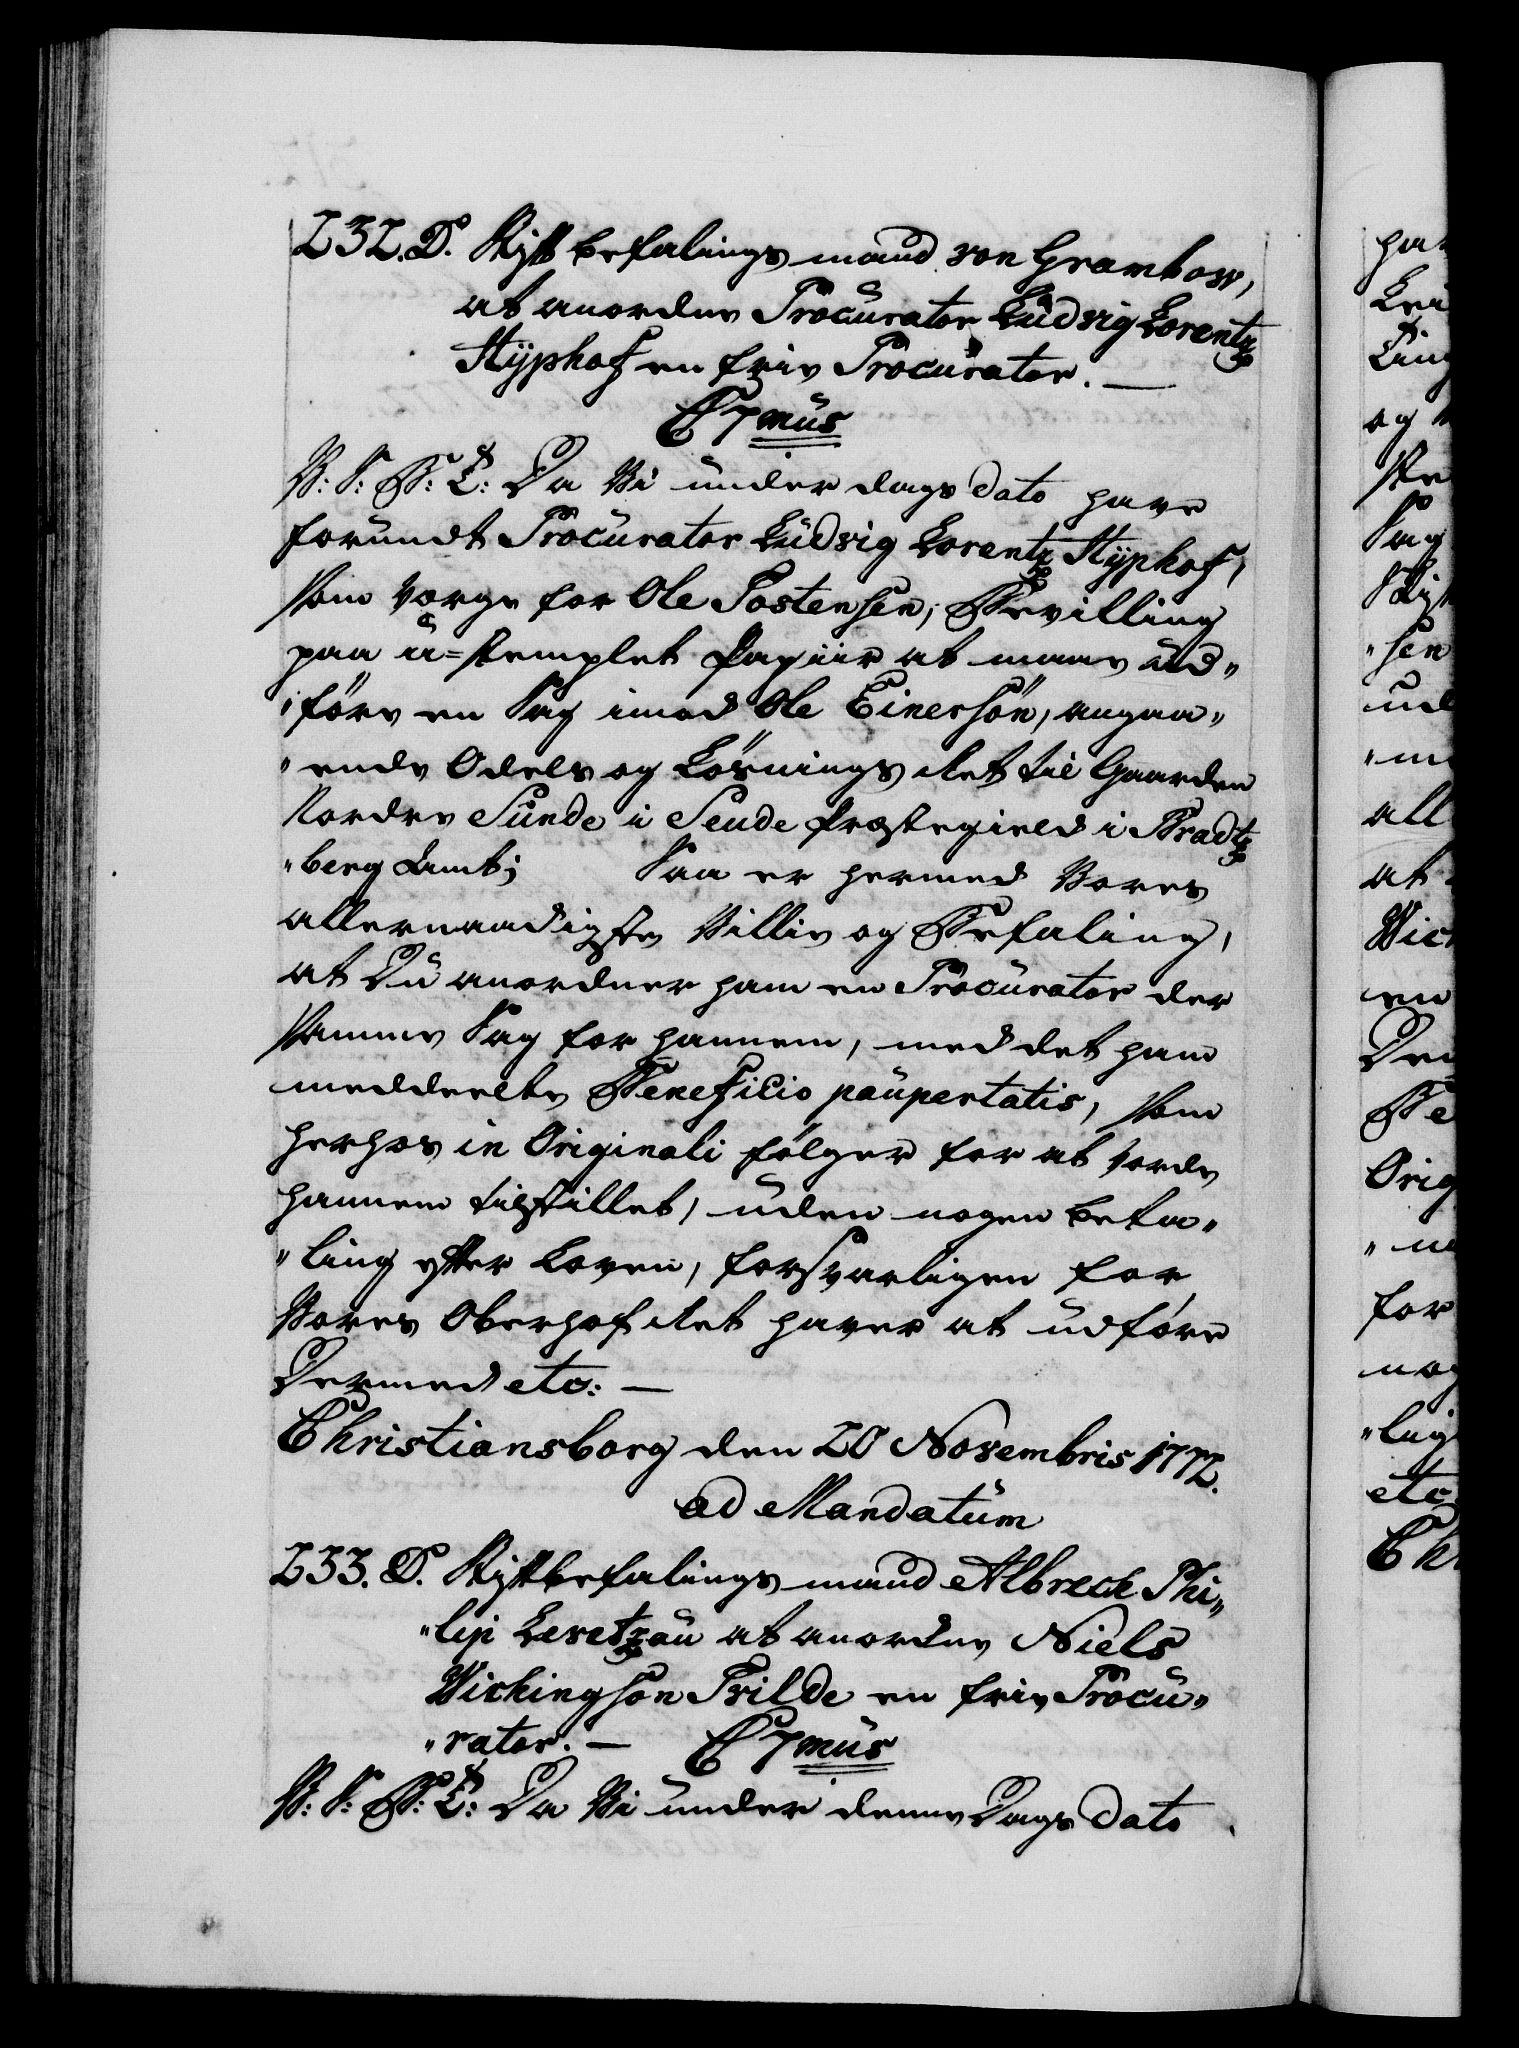 232. D.o Stiftbefalingsmand von Grambow,
at anordne Procurator Ludvig Lorentz
Stÿphof en friv Procurator. —
C 7mus
V: S: G: T: Da Vi under dags dato have
forundt Procurator Ludvig Lorentz Stÿphof,
som Værge for Ole Tostensen, Bevilling
paa u=stemplet Papiir at maae ud„
„føre en Sag imod Ole Einersøn, angaa„
„ende Odels og Løsnings Ret til Gaarden
Nordre Sunde i Seude Præstegield i Bradtz
„berg Amt; Saa er hermed Vores
allernaadigste Villie og Befaling,
at Du anordner ham en Procurator der
samme Sag for hannem, med det ham
meddeelte Beneficio paupertatis, som
herhos in Originali følger for at vorde
hannem tilstillet, uden nogen beta„
„ling efter Loven, forsvarligen for
Vores Oberhof Ret haver at udføre
Dermed etc: —
Christiansborg den 20 Novembris 1772.
ad Mandatum
233. D. Stiftbefalingsmand Albrech Phi„
„lip Levetzau at anordne Niels
Wichingson Tvilde en friv Procu„
„rator. — C 7mus
V: S: G: T: Da Vi under denne Dags Dato